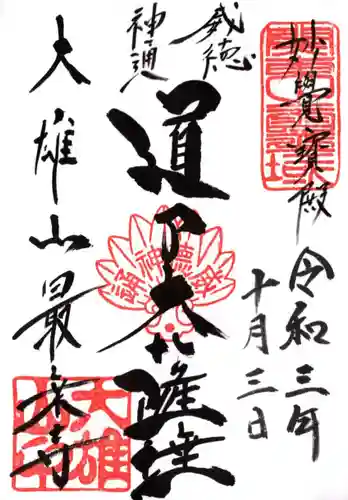 妙覺寳殿
令和三年
十月三日
威徳
神通
道了大薩埵
大雄山最乗寺